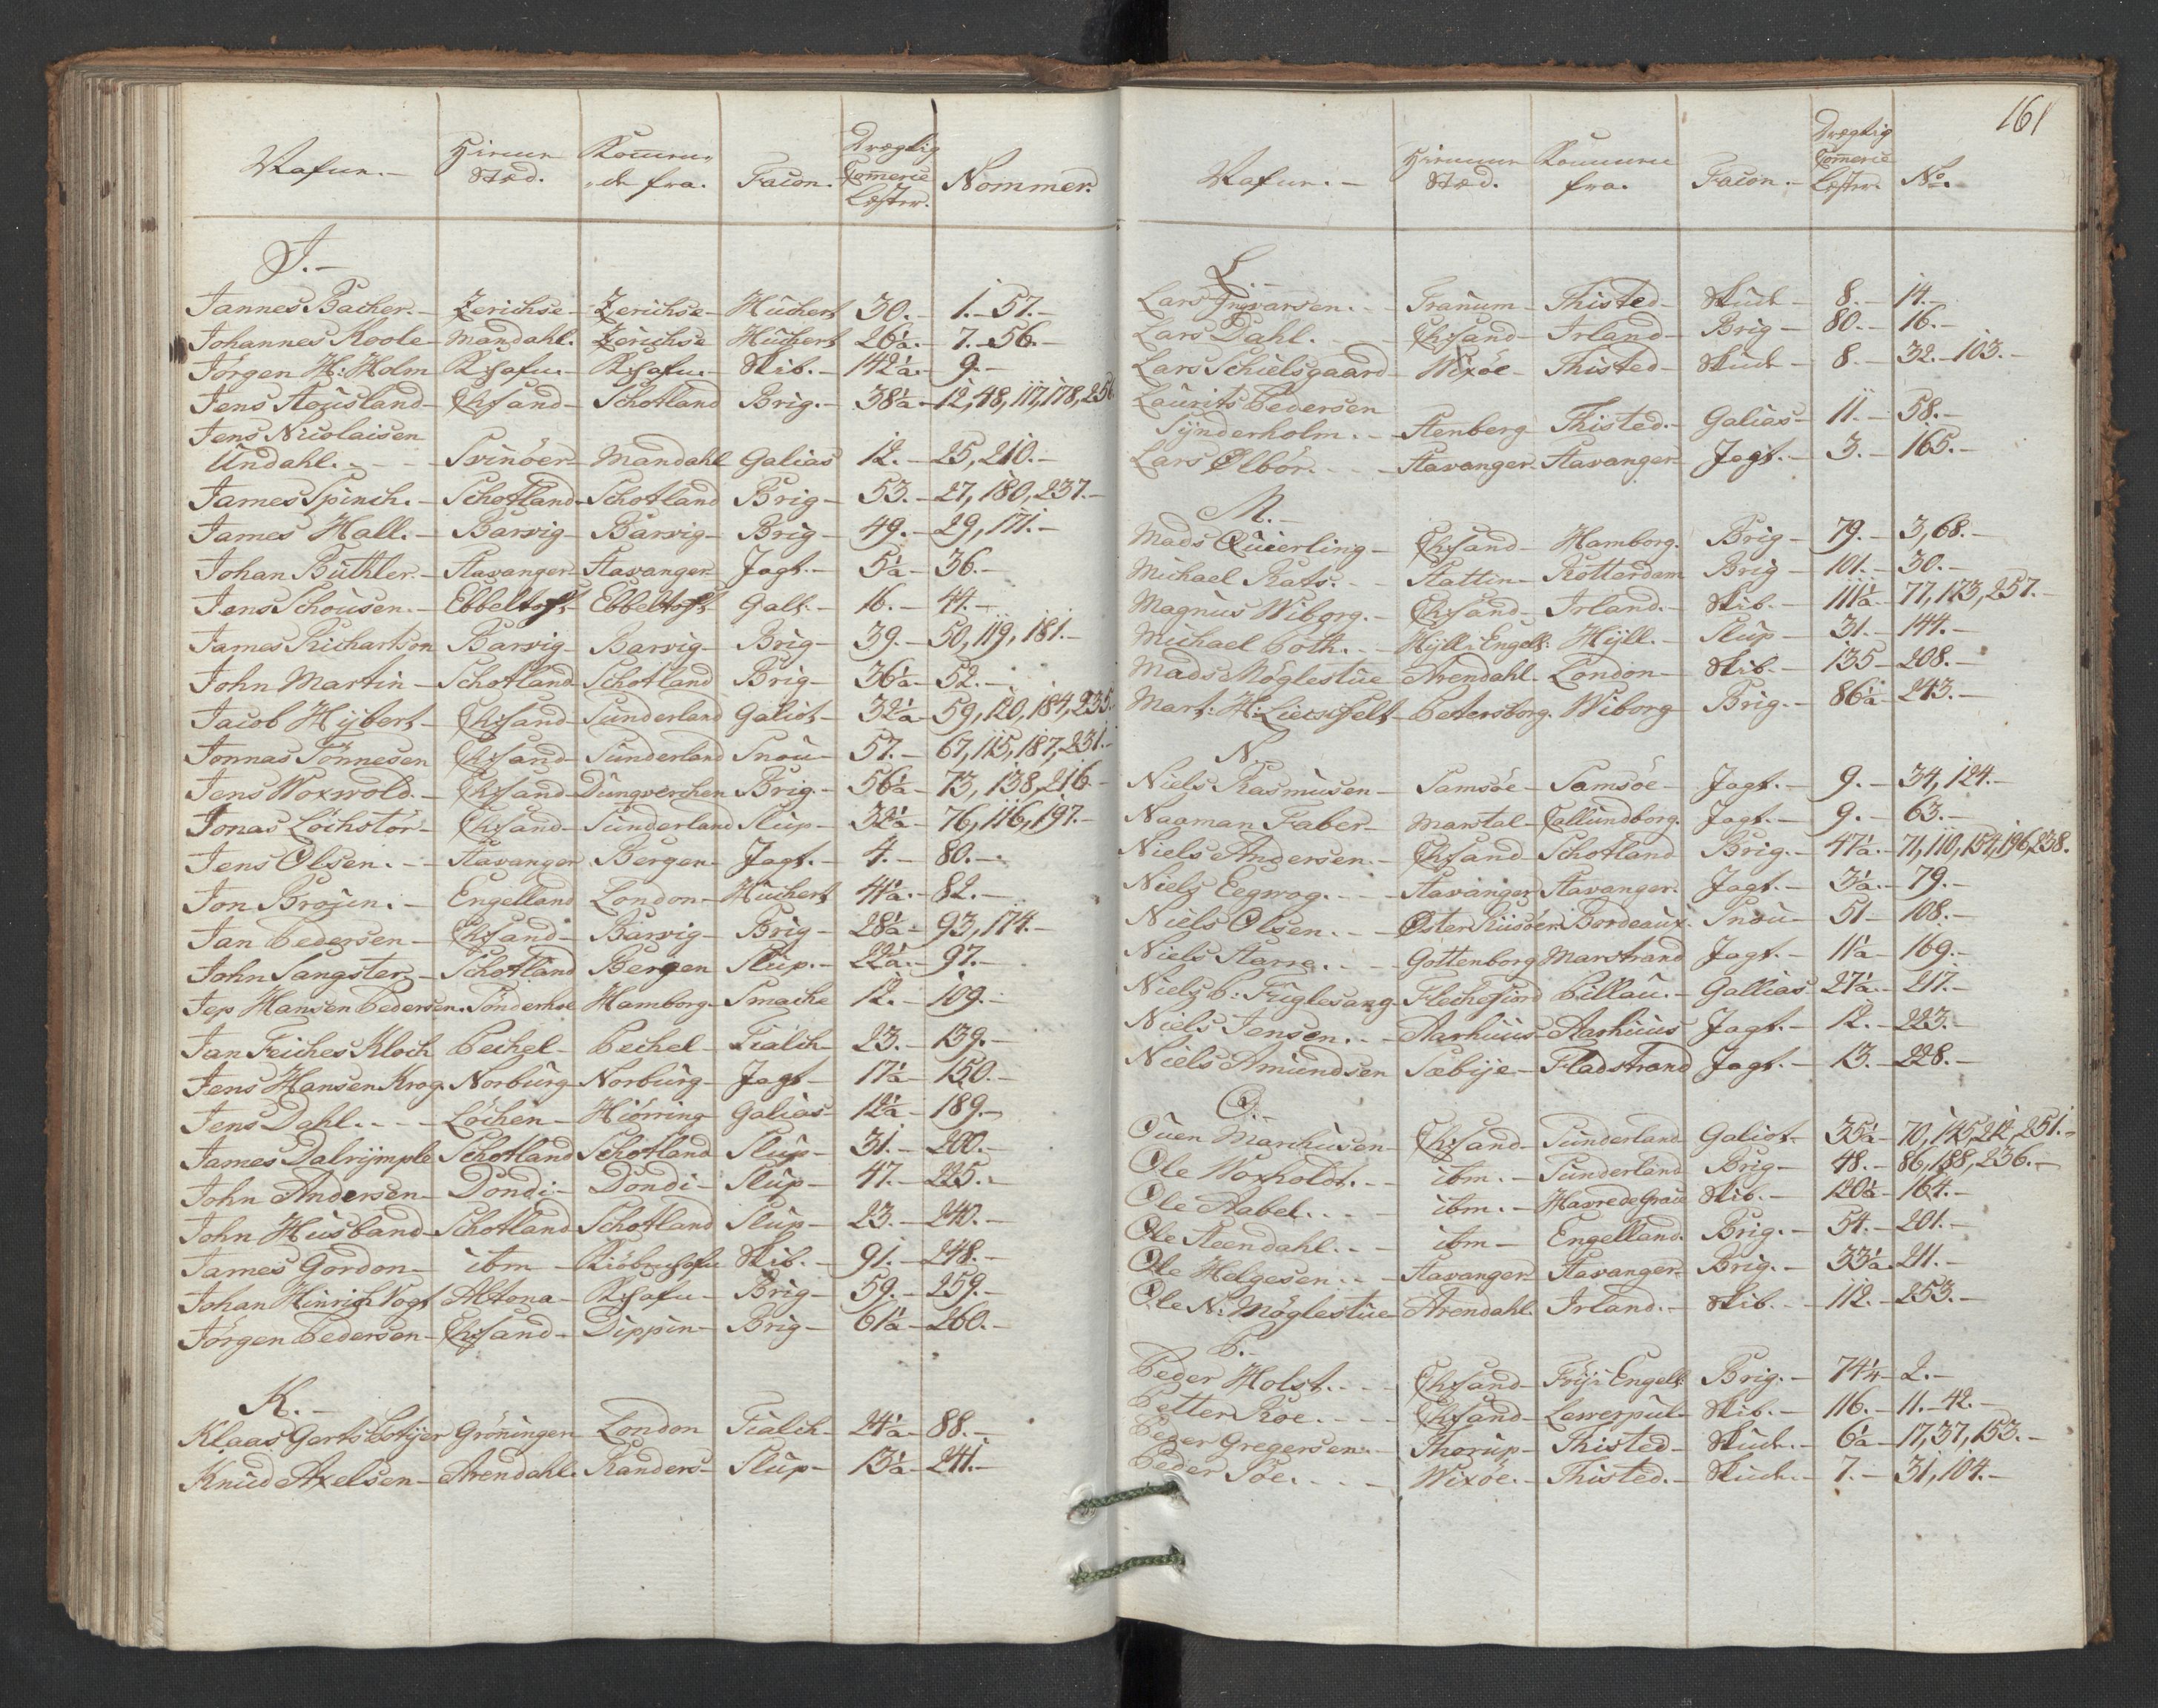 Nafn. Hiemme Stæd. Kommen- de fra. Facon. Drægtig Comerce Læster. Nommer.
J.
Jannes Bacher. Zerichse Zerichse Huchert 30. 1. 57.
Johannes Koole Mandahl. Zerichse Huchert 26½. 7. 56.
Jörgen H: Holm Khafn. Khafn. Skib. 142½. 9.
Jens Stousland Chrsand Schotland Brig. 38½. 12, 48, 117, 178, 256
Jens Nicolaisen
Undahl. Svinöer Mandahl Galias 12. 25, 210.
James Spinck. Schotland Schotland Brig 53. 27, 180, 237.
James Hall. Barvig Barvig Brig 49. 29, 171.
Johan Buthler. Stavanger Stavanger Jagt. 5½ 36.
Jens Schousen. Ebbeltoft Ebbeltoft Galt. 16. 44.
James Richartson Barvig Barvig Brig 39. 50, 119, 181.
John Martin Schotland Schotland Brig 36½ 52.
Jacob Hybert Chrsand Sunderland Galiot 32½ 59, 120, 184, 235.
Jonnas Tönnesen Chrsand Sunderland Snou 57. 67, 115, 187, 231.
Jens Woxwold. Chrsand Dunqverchen Brig. 56½ 73, 138, 216.
Jonas Löchstör Chrsand Sunderland Slup 32½ 76, 116, 197.
Jens Olsen. Stavanger Bergen Jagt. 4. 80.
Jon Broun. Engelland London Huchert 41½. 82.
Jan Pedersen Chrsand Barvig Brig 28½ 93, 174.
John Sangster Schotland Bergen Slup. 22½. 97.
Jep Hansen Pedersen. Sönderhoe Hamborg Smacke 12. 109.
Jan Feiches Kloch Pechel Pechel Tialck 23. 139.
Jens Hansen Krog. Norburg Norburg Jagt 17½ 150.
Jens Dahl. Löchen Hiörring Galias 12½ 189.
James Dalrymple Schotland Schotland Slup 31. 200.
John Andersen Dondi Dondi Slup 47. 225.
John Husband Schotland Schotland Slup 23. 240.
James Gordon ibm Kiöbenhafn Skib. 91. 248.
Johan Hinrich Vogt Altona Khafn Brig 59. 259.
Jörgen Pedersen Chrsand Dippin Brig 61½ 260.
K.
Klaas Gerts Botyer Gröningen London Tialck 24½ 88.
Knud Axelsen Arendahl. Randers Slup 13½ 241.
161
Nafn. Hiemme Stæd. Kommen fra. Facon. Drægtig Comerce Læster. No.
L.
Lars Ingvarsen. Tranum Thisted Skude 8. 14.
Lars Dahl. Chrsand Irland Brig 80. 16.
Lars Schielsgaard Wixöe Thisted Skude 8. 32. 103.
Laurits Pedersen
Synderholm. Stenberg Thisted. Galias 11. 58.
Lars Ølbör. Stavanger Stavanger Jagt. 3. 165.
M.
Mads Quierling Chrsand Hamborg. Brig 79. 3, 68.
Michael Rats. Stattin Rotterdam Brig 101. 30.
Magnus Wiborg. Chrsand Irland. Skib. 111½ 77, 173, 257.
Michael Poth. Hÿll i Engell: Hÿll. Slup 31. 144.
Mads Möglestue Arendahl. London Skib. 135 208.
Mart: H: Lieschfelt Petersborg. Wiborg Brig. 86½ 243.
N.
Niels Rasmusen Samsöe Samsöe Jagt. 9. 34, 124.
Naaman Faber Marstal Callundborg. Jagt. 9. 63.
Niels Andersen. Chrsand Schotland Brig. 47½. 71, 110, 154, 196, 238.
Niels Eegwog. Stavanger Stavanger. Jagt. 3½. 79.
Niels Olsen. Øster Riisöer Bordeaux. Snou 51 108.
Niels Starre. Gottenborg Marstrand Jagt. 11½ 169.
Niels P: Fuglesang Flechefiord Pillau. Gallias 27½. 217.
Niels Jensen. Aarhuus Aarhuus Jagt. 12. 223.
Niels Amundsen Sæbÿe Fladstrand Jagt. 13. 228.
O.
Ouen Marchusen Chrsand Sunderland Galiot 35½ 70, 145, 212, 251.
Ole Woxholdt. ibm. Sunderland Brig 48. 86, 188, 236.
Ole Aabel. ibm. Havre de Grace Skib. 120½ 164.
Ole Steendahl. ibm Engelland. Brig. 54. 201.
Ole Helgesen. Stavanger Stavanger Brig. 33½ 211.
Ole N: Möglestue Arendahl. Irland. Skib. 112. 253.
P.
Peder Holst. Chrsand Föÿ i Engell: Brig. 74¼ 2.
Petter Roe. Chrsand Lewerpul Skib. 116. 11. 42.
Peder Gregersen. Thorup Thisted Skude. 6½ 17, 37, 153.
Peder Söe. Wixöe. Thisted. Skude. 7. 31, 104.